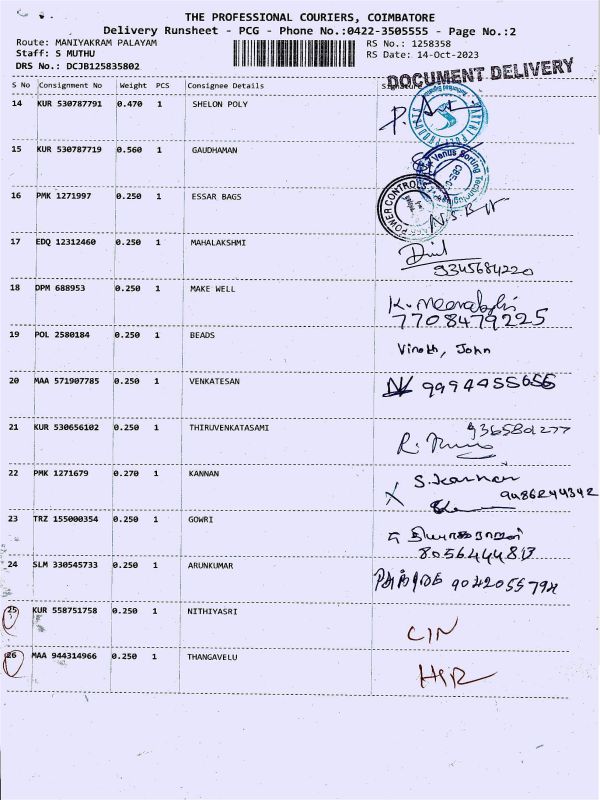 THE PROFESSIONAL COURIERS, COIMBATORE
Delivery Runsheet - PCG - Phone No.:0422-3505555 - Page No.:2
Route: MANIYAKRAM PALAYAM RS No.: 1258358
Staff: S MUTHU RS Date: 14-Oct-2023
DRS No.: DCJB125835802
DOCUMENT DELIVERY
S No Consignment No Weight PCS Consignee Details
14 KUR 530787791 0.470 1 SHELON POLY
15 KUR 530787719 0.560 1 GAUDHAMAN
16 PMK 1271997 0.250 1 ESSAR BAGS
POWER CONTROL
17 EDQ 12312460 0.250 1 MAHALAKSHMI
9345684220
18 DPM 688953 0.250 1 MAKE WELL
7708479225
19 POL 2580184 0.250 1 BEADS
Vinoth, John
20 MAA 571907785 0.250 1 VENKATESAN
21 KUR 530656102 0.250 1 THIRUVENKATASAMI
9365801277
22 PMK 1271679 0.270 1 KANNAN
S. Kannan
9486244342
23 TRZ 155000354 0.250 1 GOWRI
24 SLM 330545733 0.250 1 ARUNKUMAR
25 KUR 558751758 0.250 1 NITHIYASRI
26 MAA 944314966 0.250 1 THANGAVELU